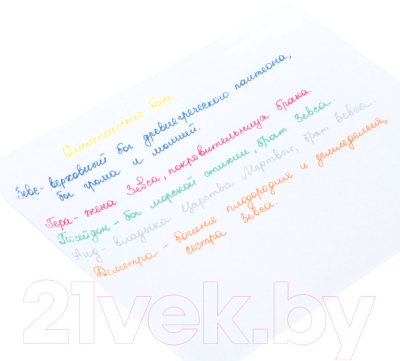 Олимпийские боги
Зевс - верховный бог древнегреческого пантеона,
бог грома и молний.
Гера - жена Зевса, покровительница брака.
Посейдон - бог морской стихии, брат Зевса
Аид - владыка Царства Мертвых, брат Зевса.
Деметра - богиня плодородия и земледелия,
сестра Зевса.
21vek.by